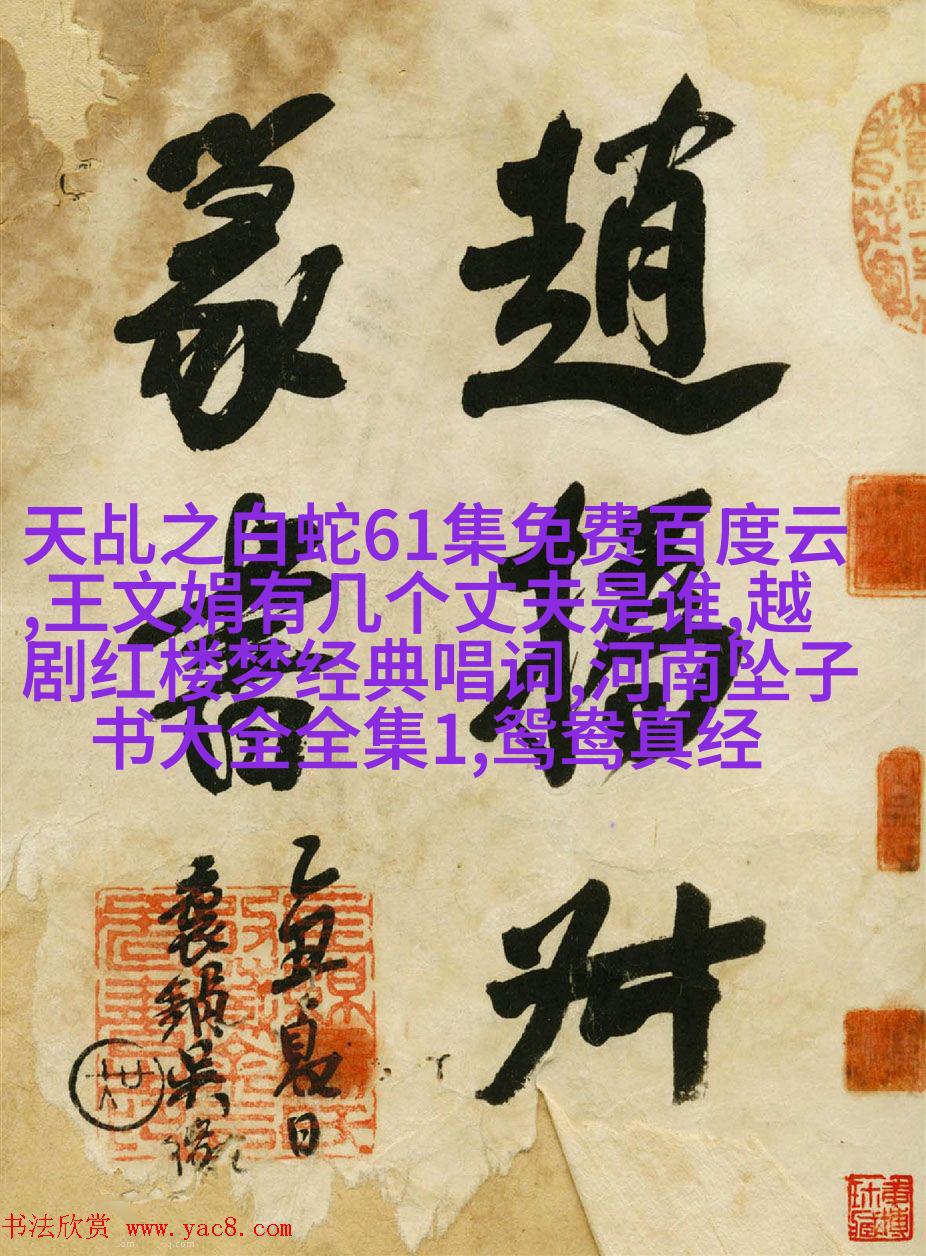 趙撝叔
篆書
乙亥夏日
天乩之白蛇61集免费百度云
,王文娟有几个丈夫是谁,越
剧红楼梦经典唱词,河南坠子
书大全全集1,鸳鸯真经
书法欣赏 www.yac8.com